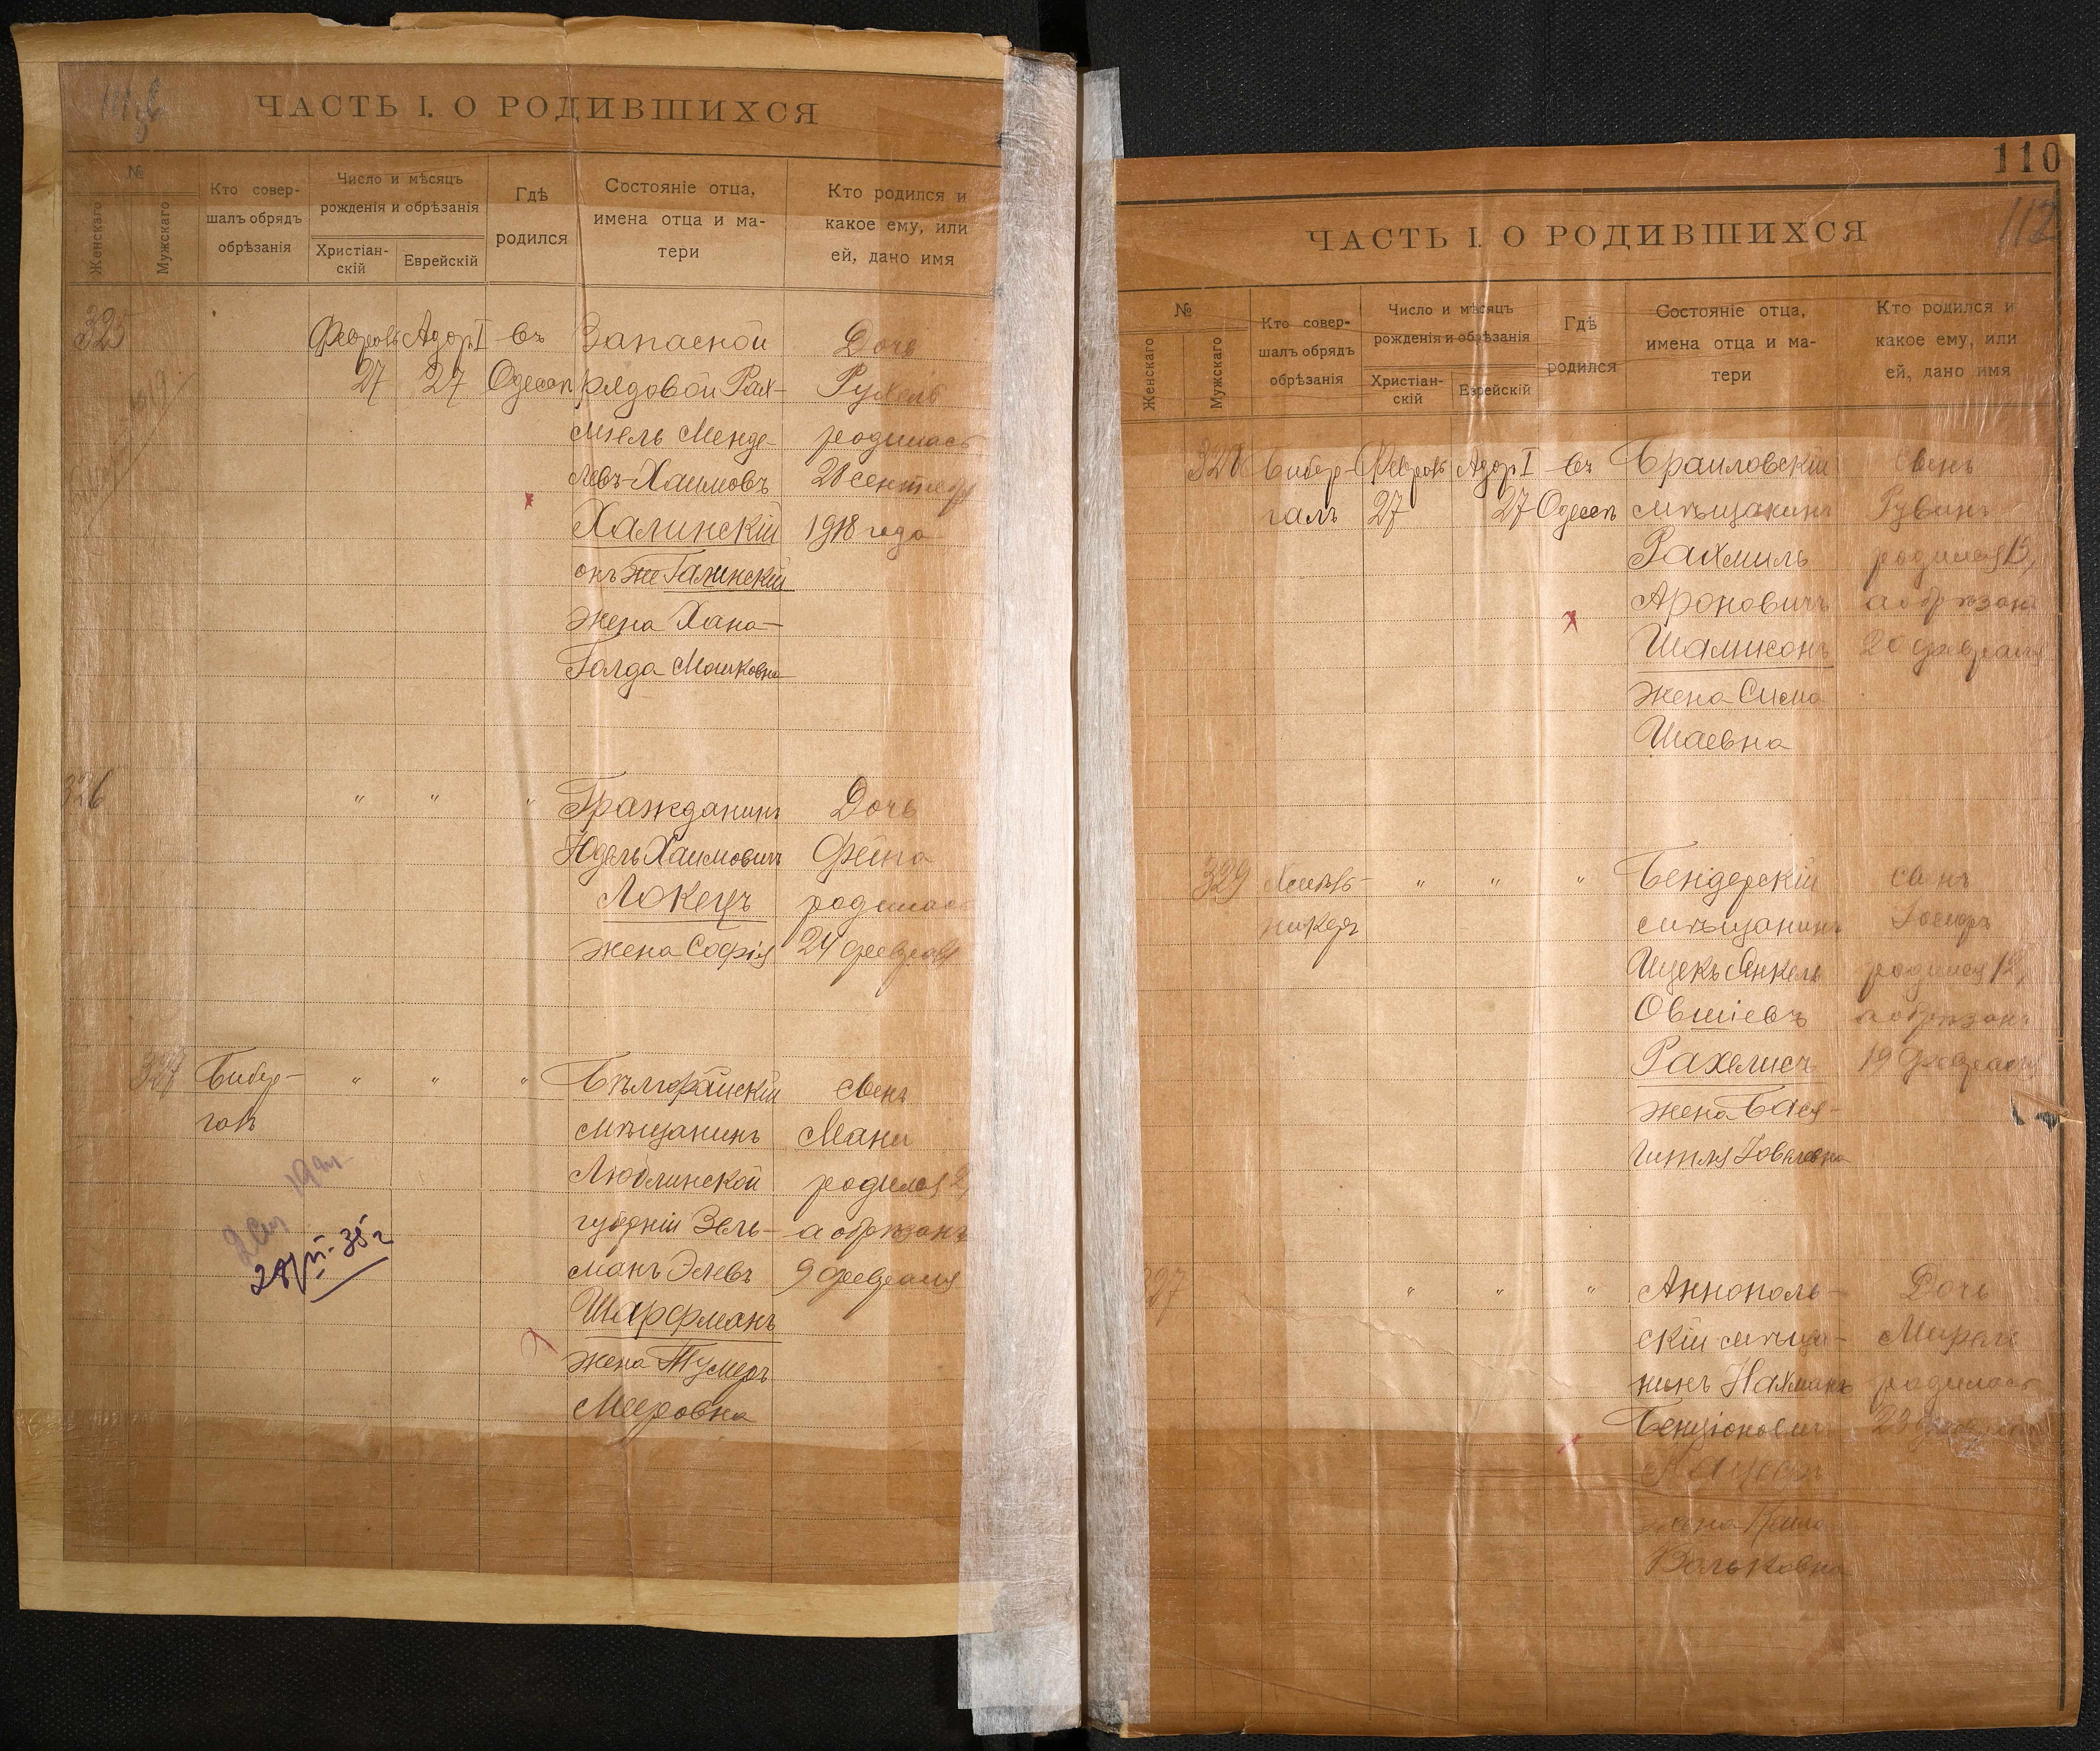 ЧАСТЬ I. О РОДИВШИХСЯ
№
Женскаго
Мужскаго
Кто совер-
шалъ обрядъ
обрѣзанія
Число и мѣсяцъ
рожденія и обрѣзанія
Христіан-
скій
Еврейскій
Гдѣ
родился
Состояніе отца,
имена отца и ма-
тери
Кто родился и
какое ему, или
ей, дано имя
325
Февраль
27
Адоръ I
27
въ
Одессѣ
Запасной
рядовой Рах-
миель Менде-
левъ-Хаимовъ
Халинскій
онъ же Галинскій
жена Хана-
Голда Мошковна
Дочь
Рухель
родилась
28 сентября
1918 года
326
" " "
Гражданинъ
Юдель Хаимовичъ
Локецъ
жена Софія
Дочь
Фейга
родилась
24 февраля
327
Бибер-
галъ
" " "
Бѣлгорайскій
мѣщанинъ
Люблинской
губерніи Зель-
манъ Элевъ
Шарфманъ
жена
Мееровна
сынъ
Мани
родился 2,
а обрѣзанъ
9 февраля
ЧАСТЬ I. О РОДИВШИХСЯ
110
112
№
Женскаго
Мужскаго
Кто совер-
шалъ обрядъ
обрѣзанія
Число и мѣсяцъ
рожденія и обрѣзанія
Христіан-
скій
Еврейскій
Гдѣ
родился
Состояніе отца,
имена отца и ма-
тери
Кто родился и
какое ему, или
ей, дано имя
328
Бибер-
галъ
Февраль
27
Адоръ I
27
въ
Одессѣ
Браиловскій
мѣщанинъ
Рахмиль
Ароновичъ
Шамисонъ
жена Сима
Шаевна
сынъ
Рувинъ
родился 13,
а обрѣзанъ
20 февраля
329
" " "
Бендерскій
мѣщанинъ
Ицекъ Янкель
Овшіевъ
Рахелисъ
жена Бася-
Гитля
сынъ
Іосифъ
родился 12,
а обрѣзанъ
19 февраля
327
" " "
Аннополь-
скій мѣща-
нинъ Нахманъ
Бенціоновичъ
жена
Вольковна
Дочь
родилась
23 февраля